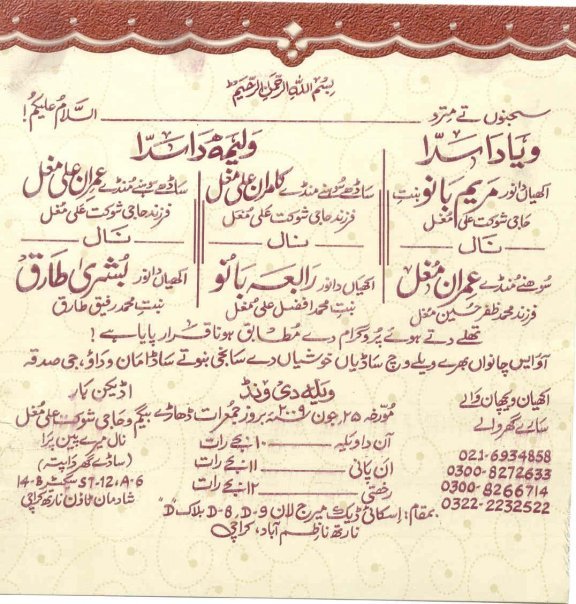 بِسْمِ اللهِ الرَّحمٰنِ الرَّحِیْم
سجنوں تے مترو ـــــــــــــ السّلامُ علیکمُ!
ویاہ دا سدّا
اکھیاں دا نور مریم بانو بنتِ
حاجی شوکت علی مُغل
نال
سوھنے مُنڈے عمران مُغل
فرزند محمد ظفر حسین مُغل
ولیمہ دا سدّا
ساڈے سوہنے مُنڈے کامران علی مُغل
فرزند حاجی شوکت علی مُغل
نال
اکھیاں دا نور رابعہ بانو
بنتِ محمد افضل علی مُغل
ساڈھے سوہنے مُنڈے عمران علی مُغل
فرزند حاجی شوکت علی مُغل
نال
اکھیاں دا نور بُشریٰ طارق
بنتِ محمد رفیق طارق
تھلے دتے ہوئے پروگرام دے مُطابق ہونا قرار پایا ہے !
آؤ ایس چانواں بھرے ویلے وچ ساڈیاں خوشیاں دے سانجھی بنو تے ساڈا مان ودھاؤ، جی صدقہ
اکھیاں وچھان والے
سارے گھر والے
021-6934858
0300-8272633
0300-8266714
0322-2232522
ویلہ دی ونڈ
مورخہ ۲۵ جون ۲۰۰۹ء بروز جمرات ڈھاڑے
آن دا ویلہ ـــــــ ۱۰ بجے رات
ان پانی ـــــــ ۱۱ بجے رات
رخصتی ـــــــ ۱۲ بجے رات
بمقام: اسکائی ڈیک میرج لان D-8, D-9 بلاک "D"
نارتھ ناظم آباد، کراچی
اڈیکن ہار
بیگم و حاجی شوکت علی مُغل
نال میرے پین پرا
(ساڈے گھر دا پتہ)
14-B سیکٹر ST-12, A-6
شادمان ٹاؤن نارتھ کراچی